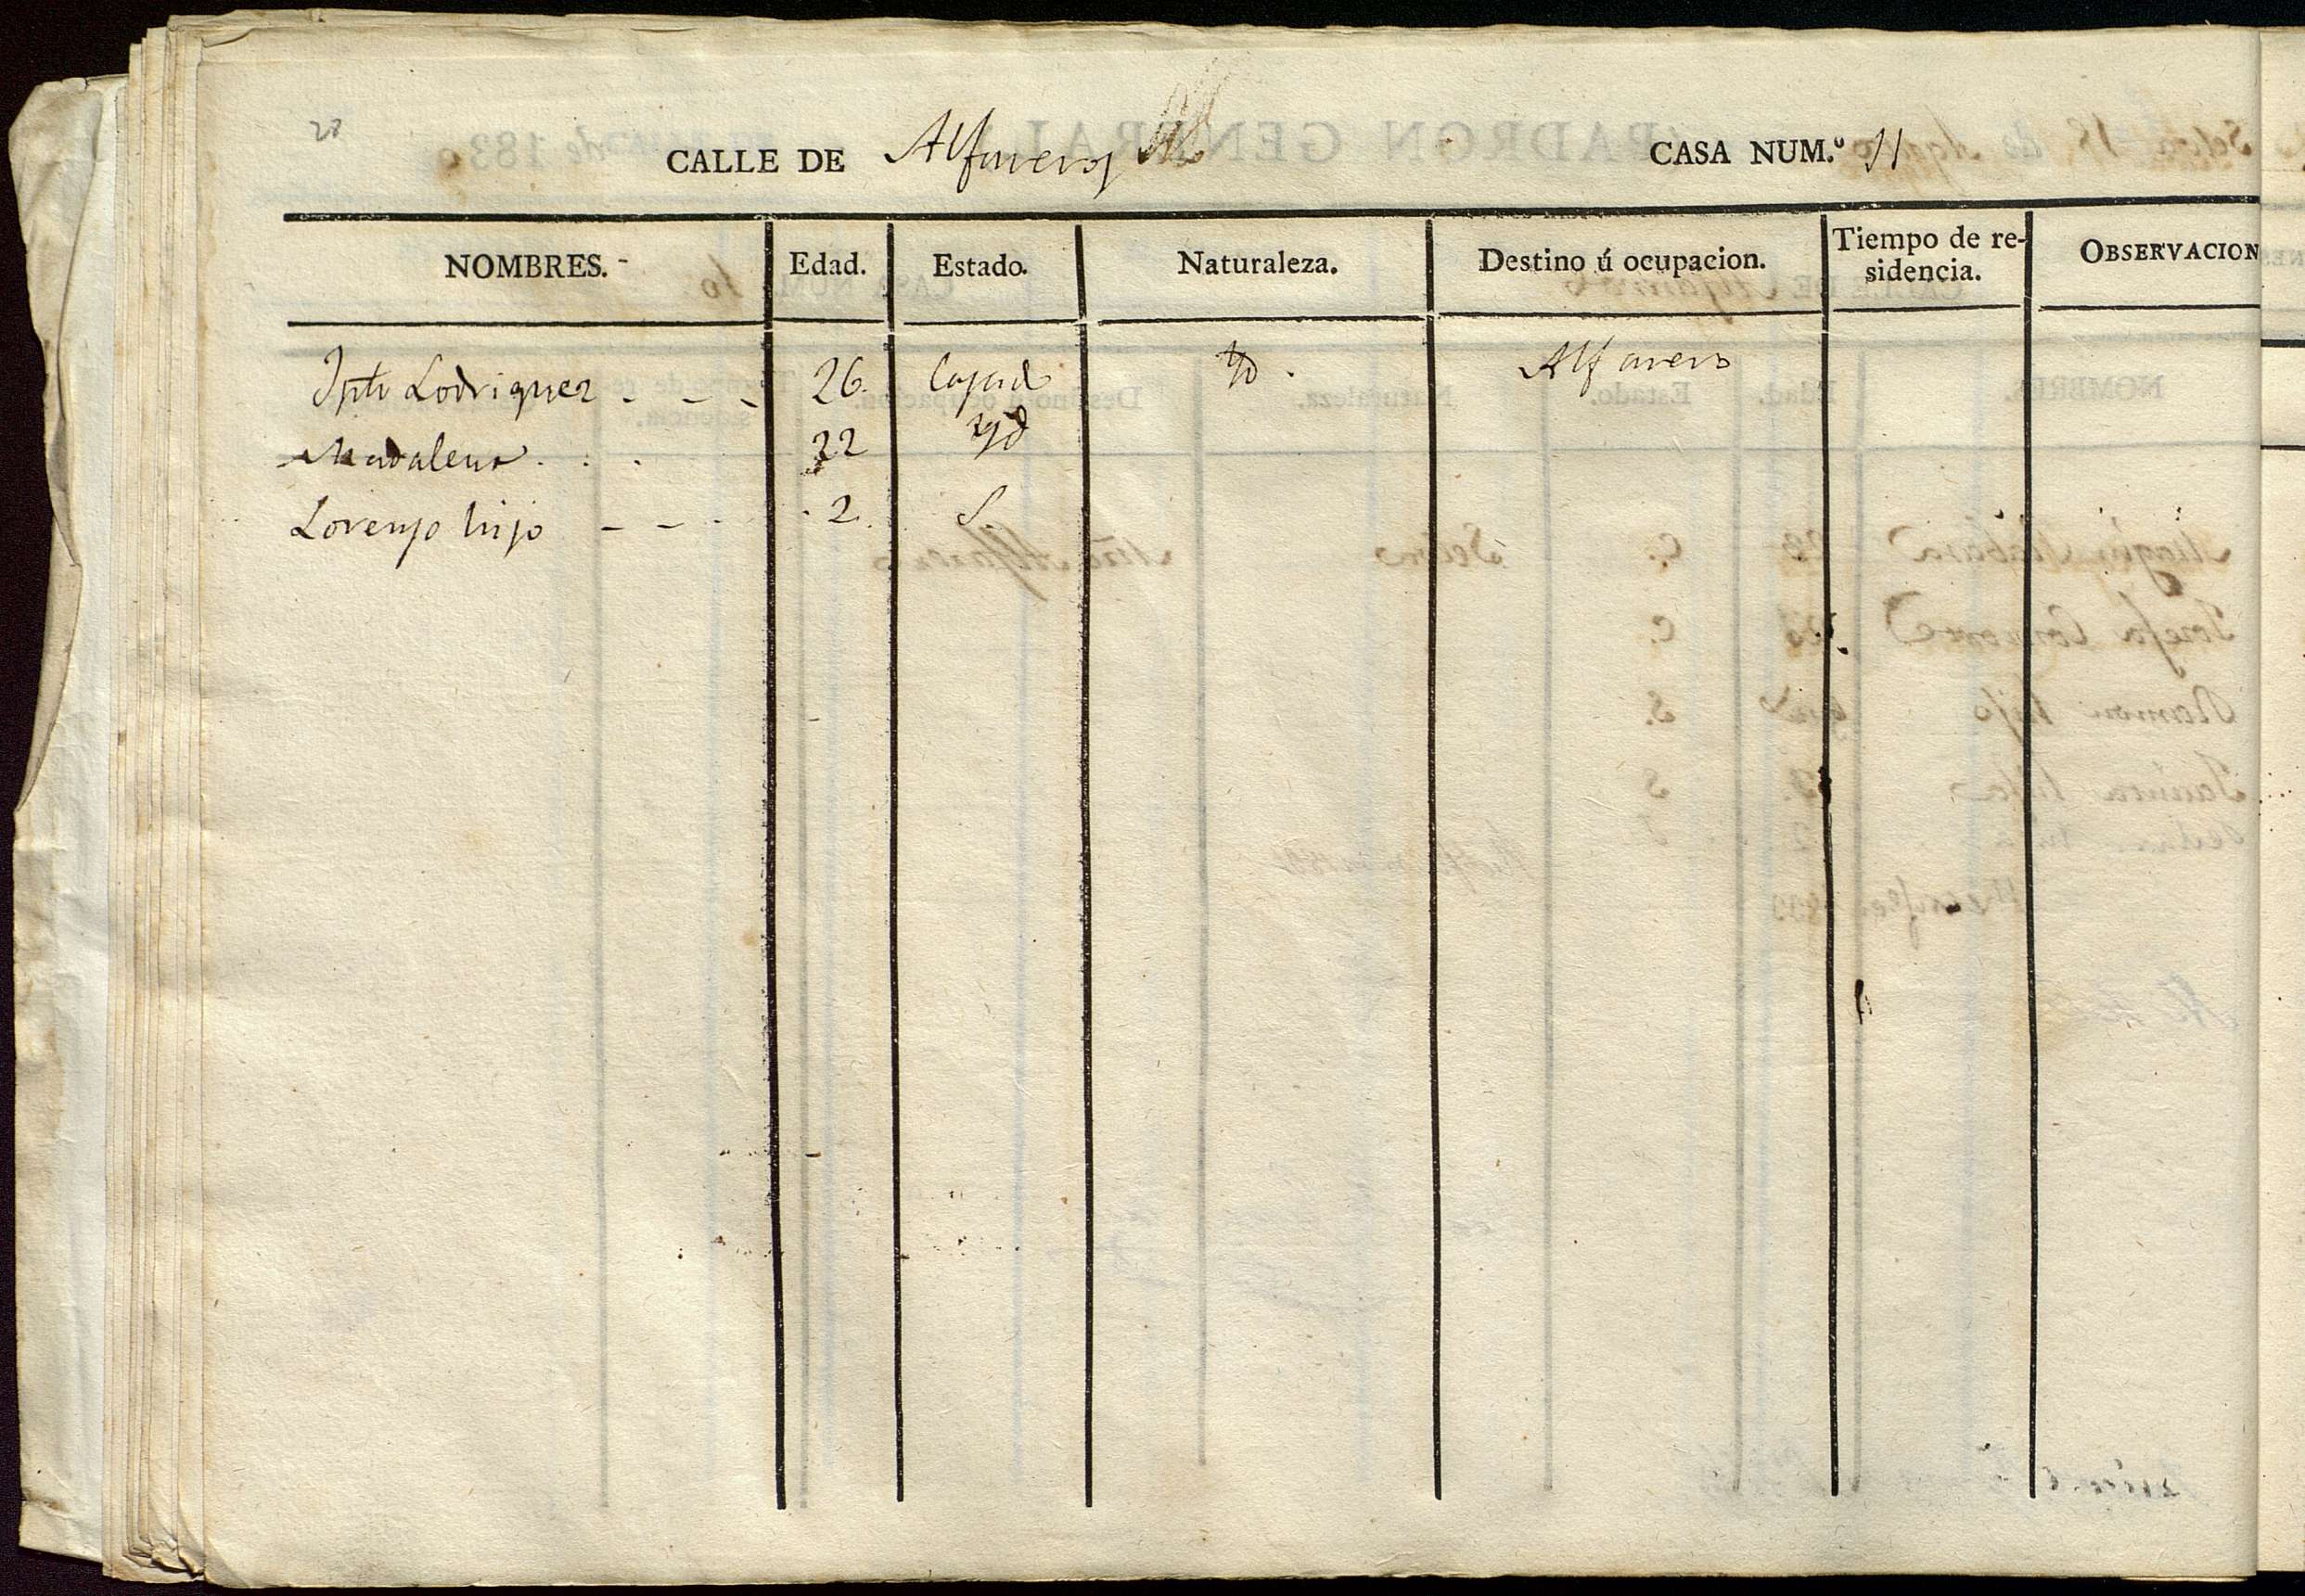 28
CALLE DE Alfareros CASA NUM.º 11
NOMBRES. Edad. Estado. Naturaleza. Destino ú ocupacion. Tiempo de re-
sidencia. OBSERVACION
Lodriguez - - - 26. Casad Yd. Alfarero
Madalena . . . 22 Yd
Lorenzo hijo - - - 2. S